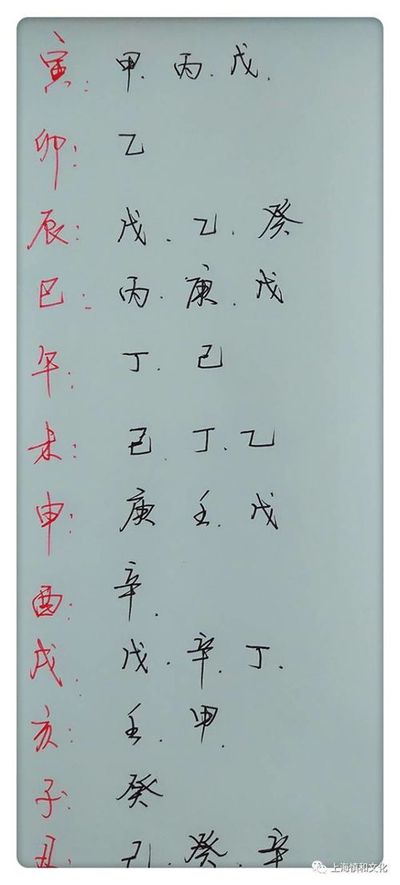 寅: 甲. 丙. 戊.
卯: 乙
辰: 戊. 乙. 癸
巳: 丙. 庚. 戊
午: 丁. 己
未: 己. 丁. 乙
申: 庚 壬. 戊
酉: 辛.
戌. 戊. 辛. 丁.
亥: 壬. 甲.
子: 癸
丑: 己. 癸. 辛
上海慎和文化